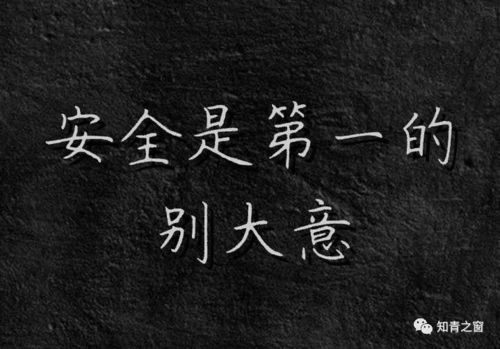 安全是第一的
别大意
知青之窗